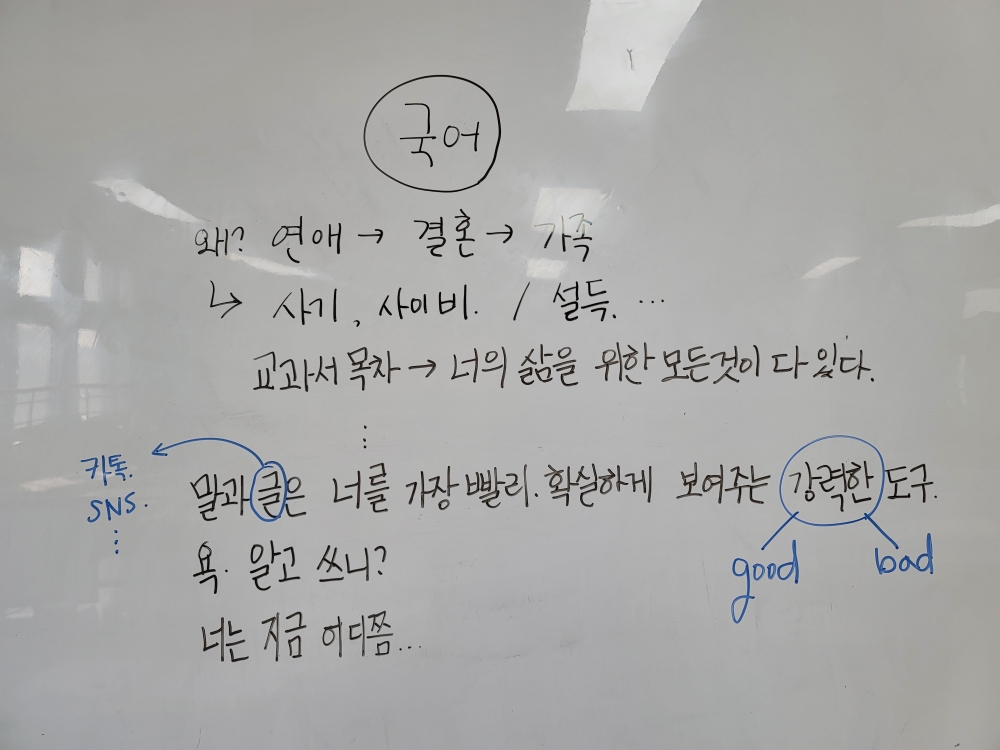 국어
왜? 연애 → 결혼 → 가족
↳ 사기, 사이비. / 설득. ...
교과서 목차 → 너의 삶을 위한 모든것이 다 있다.
⋮
카톡.
SNS.
⋮
말과 글은 너를 가장 빨리. 확실하게 보여주는 강력한 도구.
good bad
욕. 알고 쓰니?
너는 지금 어디쯤...